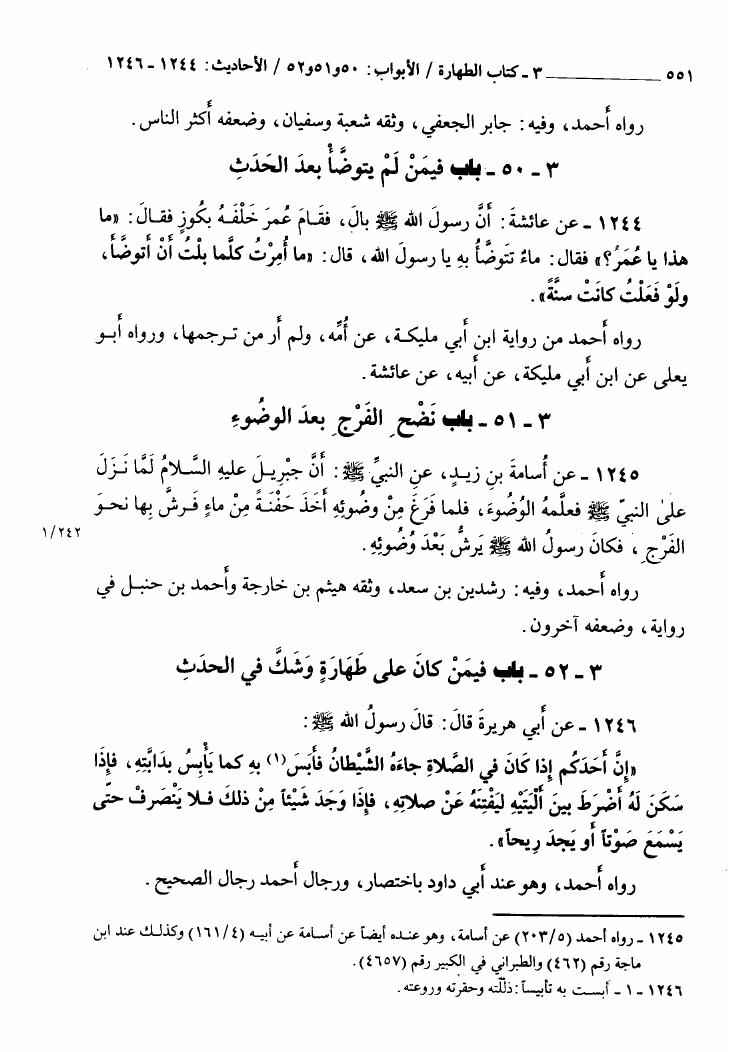 ٥٥١ ــــــــــــــــ ٣ ـ كتاب الطهارة / الأبواب: ٥٠ و٥١ و٥٢ / الأحاديث: ١٢٤٤ - ١٢٤٦
رواه أحمد، وفيه: جابر الجعفي، وثقه شعبة وسفيان، وضعفه أكثر الناس.
٣ ـ ٥٠ ـ باب فيمَنْ لَمْ يتوضَّأْ بعدَ الحَدَثِ
١٢٤٤ ـ عن عائشةَ: أَنَّ رسولَ الله ﷺ بالَ، فقـامَ عُمرَ خَلْفَـهُ بكُوزٍ فقـالَ: «ما
هذا يا عُمَرُ؟» فقال: ماءٌ تتَوضَّأُ بهِ يا رسولَ الله، قال: «ما أُمِرْتُ كلَّما بلْتُ أَنْ أتوضَّأَ،
ولَوْ فَعَلْتُ كانَتْ سنَّةً».
رواه أحمد من رواية ابن أبي مليكـة، عن أُمِّه، ولم أر من تـرجمها، ورواه أبـو
يعلى عن ابن أبي مليكة، عن أبيه، عن عائشة.
٣ ـ ٥١ ـ باب نَضْحِ الفَرْجِ بعدَ الوضُوءِ
١٢٤٥ ـ عن أُسامةَ بن زيـدٍ، عنِ النبيِّ ﷺ: أَنَّ جِبْريـلَ عليهِ السَّـلامُ لَمَّا نـزَلَ
علىٰ النبيّ ﷺ فعلَّمهُ الوُضُوءَ، فلما فَرَغَ مِنْ وضُوئِهِ أَخَذَ حَفْنَـةً مِنْ ماءٍ فـرشَّ بِها نحـوَ
الفَرْجِ، فكانَ رسولُ الله ﷺ يَرشُّ بَعْدَ وُضُوئِهِ.
١/٢٤٢
رواه أحمد، وفيه: رشدين بن سعد، وثقه هيثم بن خارجة وأحمد بن حنبـل في
رواية، وضعفه آخرون.
٣ ـ ٥٢ ـ باب فيمَنْ كانَ على طَهَارَةٍ وَشَكَّ في الحدَثِ
١٢٤٦ ـ عن أبي هريرةَ قالَ: قالَ رسولُ الله ﷺ:
«إِنَّ أَحَدَكُم إذا كَانَ في الصَّلاةِ جاءَهُ الشَّيْطانُ فأَبَسَ(١) بهِ كما يَأْبِسُ بدَابَّتِهِ، فإذَا
سَكَنَ لَهُ أضْرَطَ بينَ ألْيَتَيْهِ ليَفْتِنَهُ عَنْ صلاتِهِ، فإذَا وَجَدَ شَيْئاً مِنْ ذلكَ فـلا يَنْصَرفْ حتّى
يَسْمَعَ صَوْتاً أو يَجدَ رِيحاً».
رواه أحمد، وهو عند أبي داود باختصار، ورجال أحمد رجال الصحيح.
١٢٤٥ ـ رواه أحمد (٢٠٣/٥) عن أسامة، وهو عنـده أيضاً عن أسـامة عن أبيـه (١٦١/٤) وكذلـك عند ابن
ماجة رقم (٤٦٢) والطبراني في الكبير رقم (٤٦٥٧).
١٢٤٦ ـ ١ ـ أبست به تأبيساً: ذلّلته وحقرته وروعته.